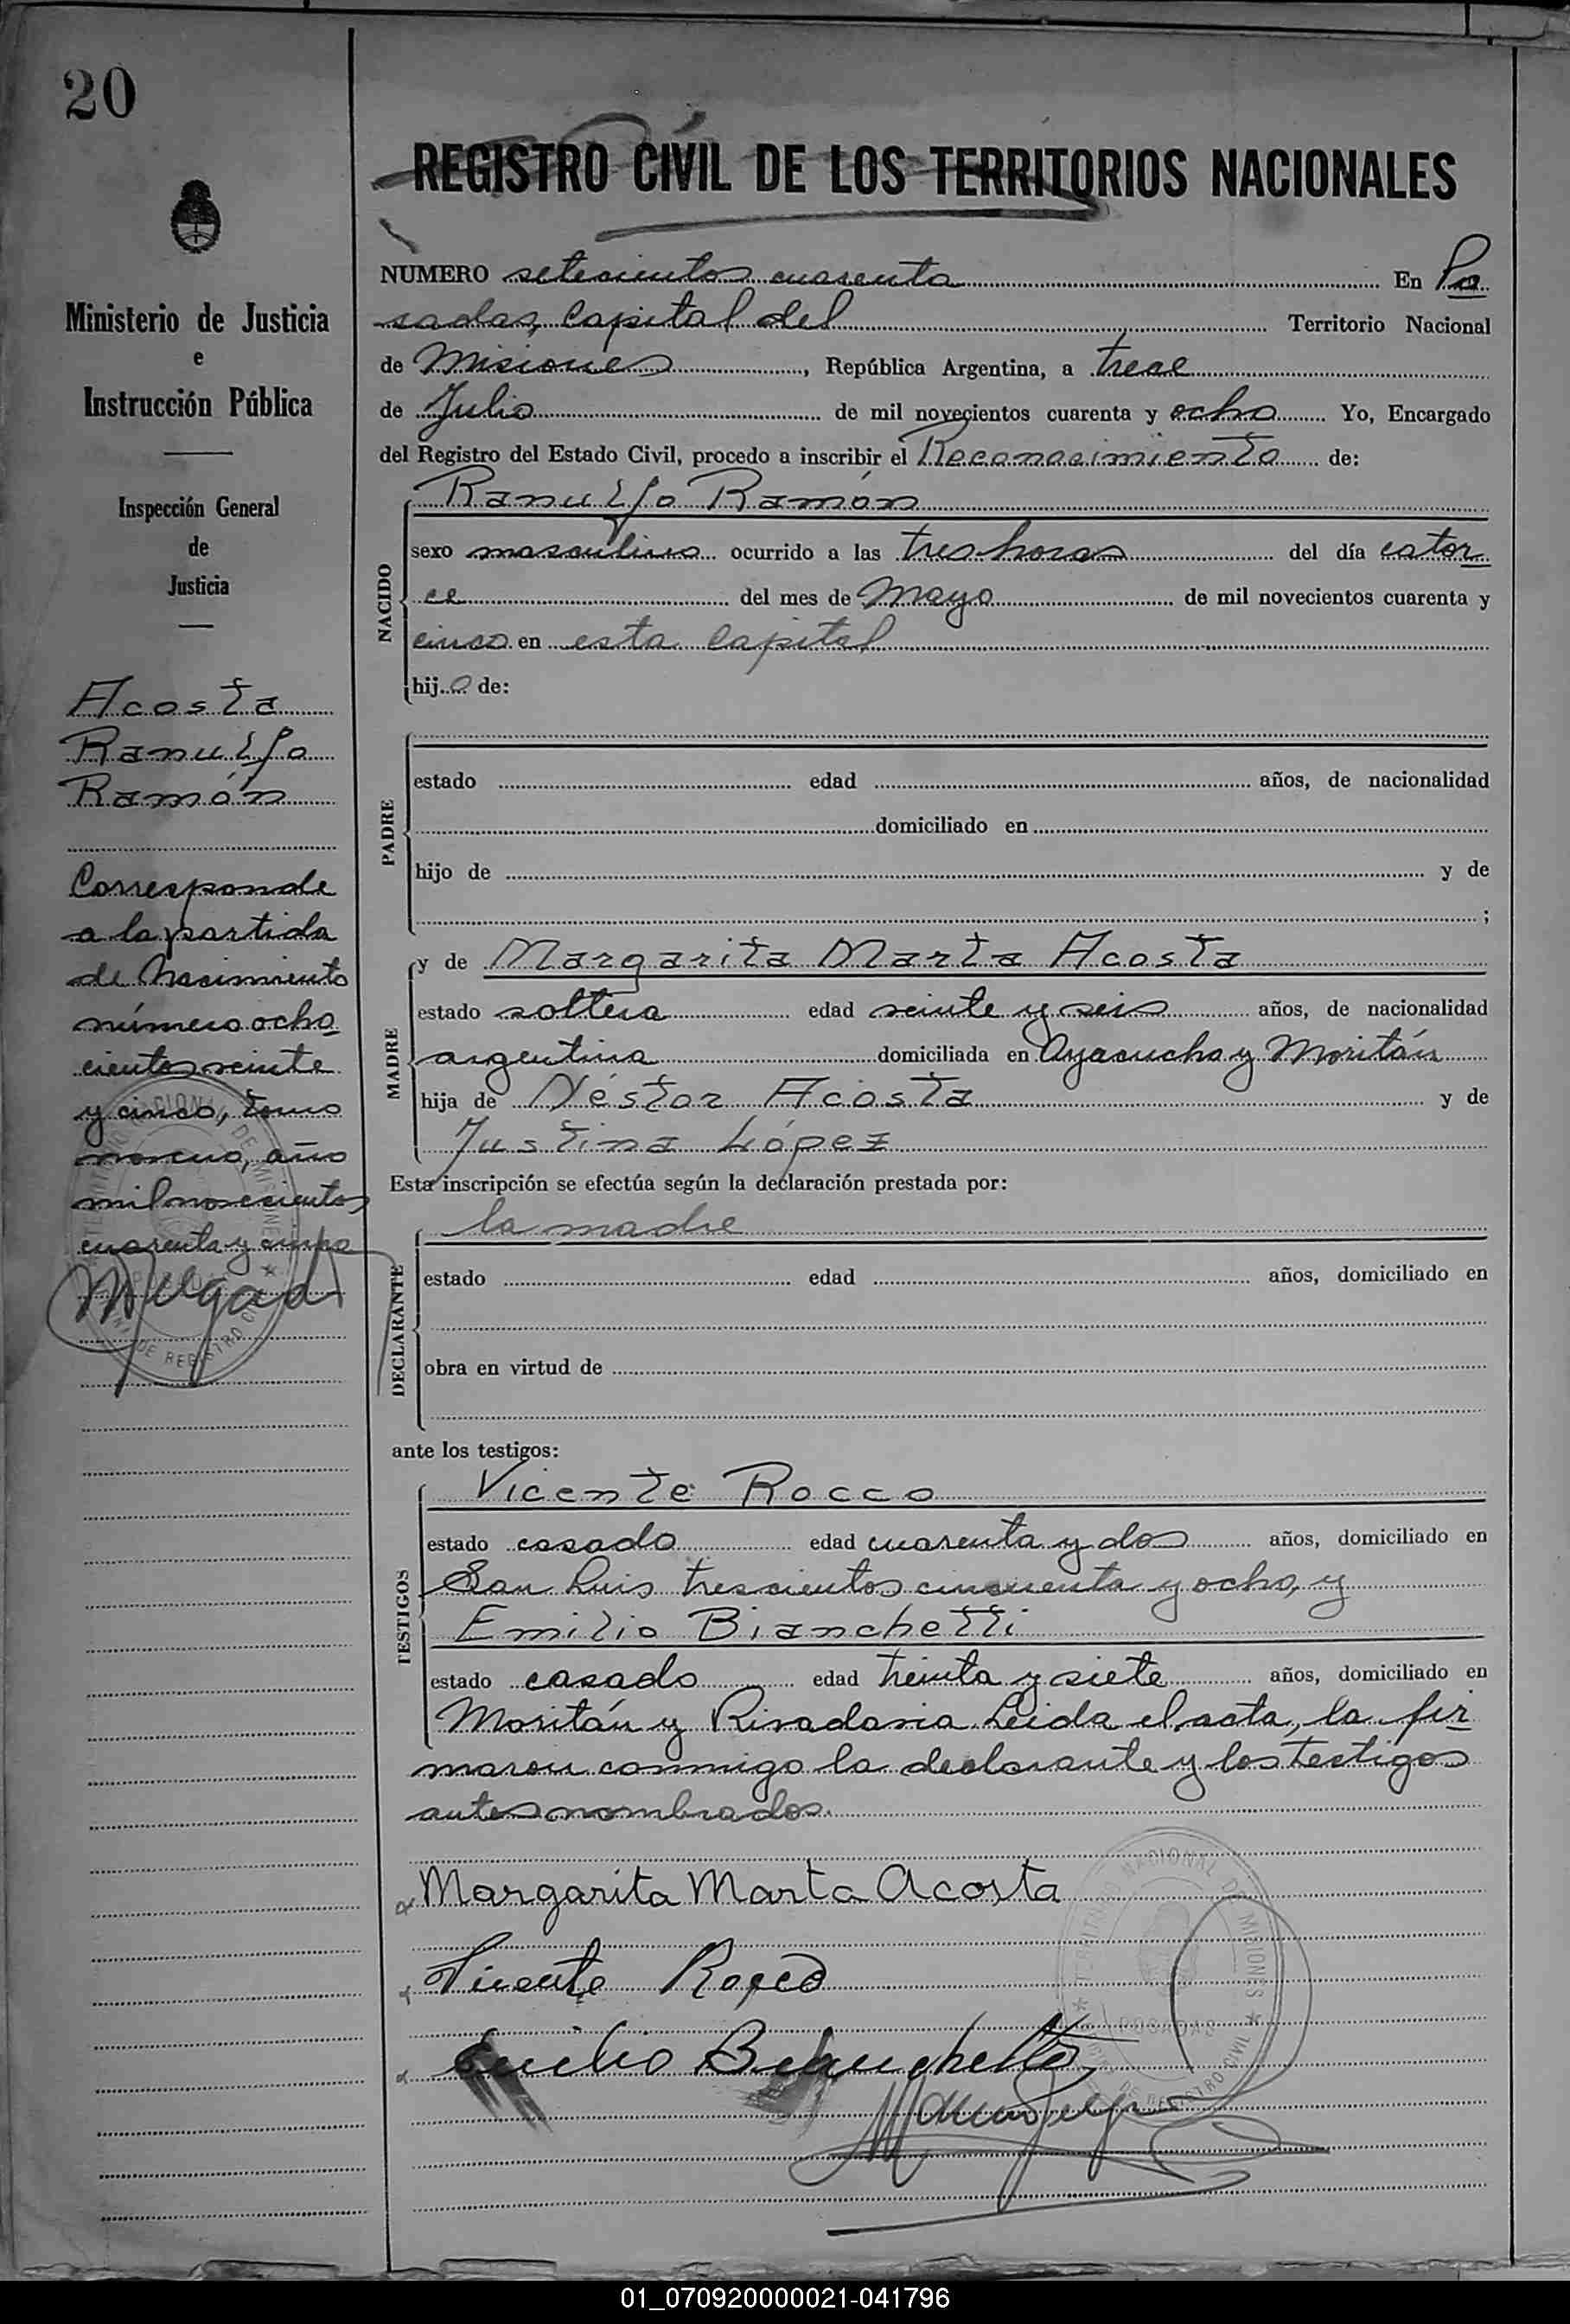 20
Ministerio de Justicia
e
Instrucción Pública
Inspección General
de
Justicia
Acosta
Ranulfo
Ramón
Corresponde
a la partida
de Nacimiento
número ocho
cientos veinte
y cinco, tomo
noveno, año
mil novecientos
cuarenta y cinco
REGISTRO CIVIL DE LOS TERRITORIOS NACIONALES
NUMERO setecientos cuarenta En Po
sadas, Capital del Territorio Nacional
de Misiones, República Argentina, a trece
de Julio de mil novecientos cuarenta y ocho Yo, Encargado
del Registro del Estado Civil, procedo a inscribir el Reconocimiento de:
NACIDO
Ranulfo Ramón
sexo masculino ocurrido a las tres horas del día cator
ce del mes de Mayo de mil novecientos cuarenta y
cinco en esta Capital
hijo de:
PADRE
estado edad años, de nacionalidad
domiciliado en
hijo de y de
;
MADRE
y de Margarita Marta Acosta
estado soltera edad veinte y seis años, de nacionalidad
argentina domiciliada en Ayacucho y Moritán
hija de Néstor Acosta y de
Justina López
Esta inscripción se efectúa según la declaración prestada por:
DECLARANTE
la madre
estado edad años, domiciliado en
obra en virtud de
ante los testigos:
TESTIGOS
Vicente Rocco
estado casado edad cuarenta y dos años, domiciliado en
San Luis trescientos cincuenta y ocho, y
Emilio Bianchetti
estado casado edad treinta y siete años, domiciliado en
Moritán y Rivadavia. Leida el acta, la fir
maron conmigo la declarante y los testigos
antes nombrados.
Margarita Marta Acosta
Vicente Rocco
Emilio Bianchetti
TERRITORIO NACIONAL DE MISIONES
POSADAS
DE REGISTRO CIVIL
01_070920000021-041796